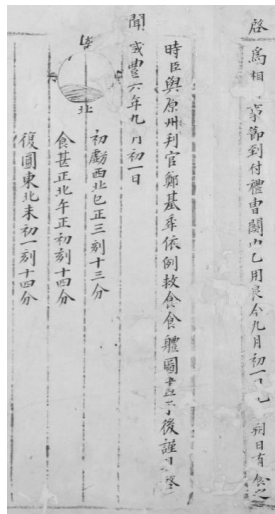 啓
爲相考事節到付禮曹關內乙用良今九月初一日乙朔日有食之
時臣與原州判官鄭基依例救食食軆圖後謹啓
聞咸豐六年九月初一日
北
初虧西北巳正三刻十三分
食甚正北午正初刻十四分
復圓東北未初一刻十四分